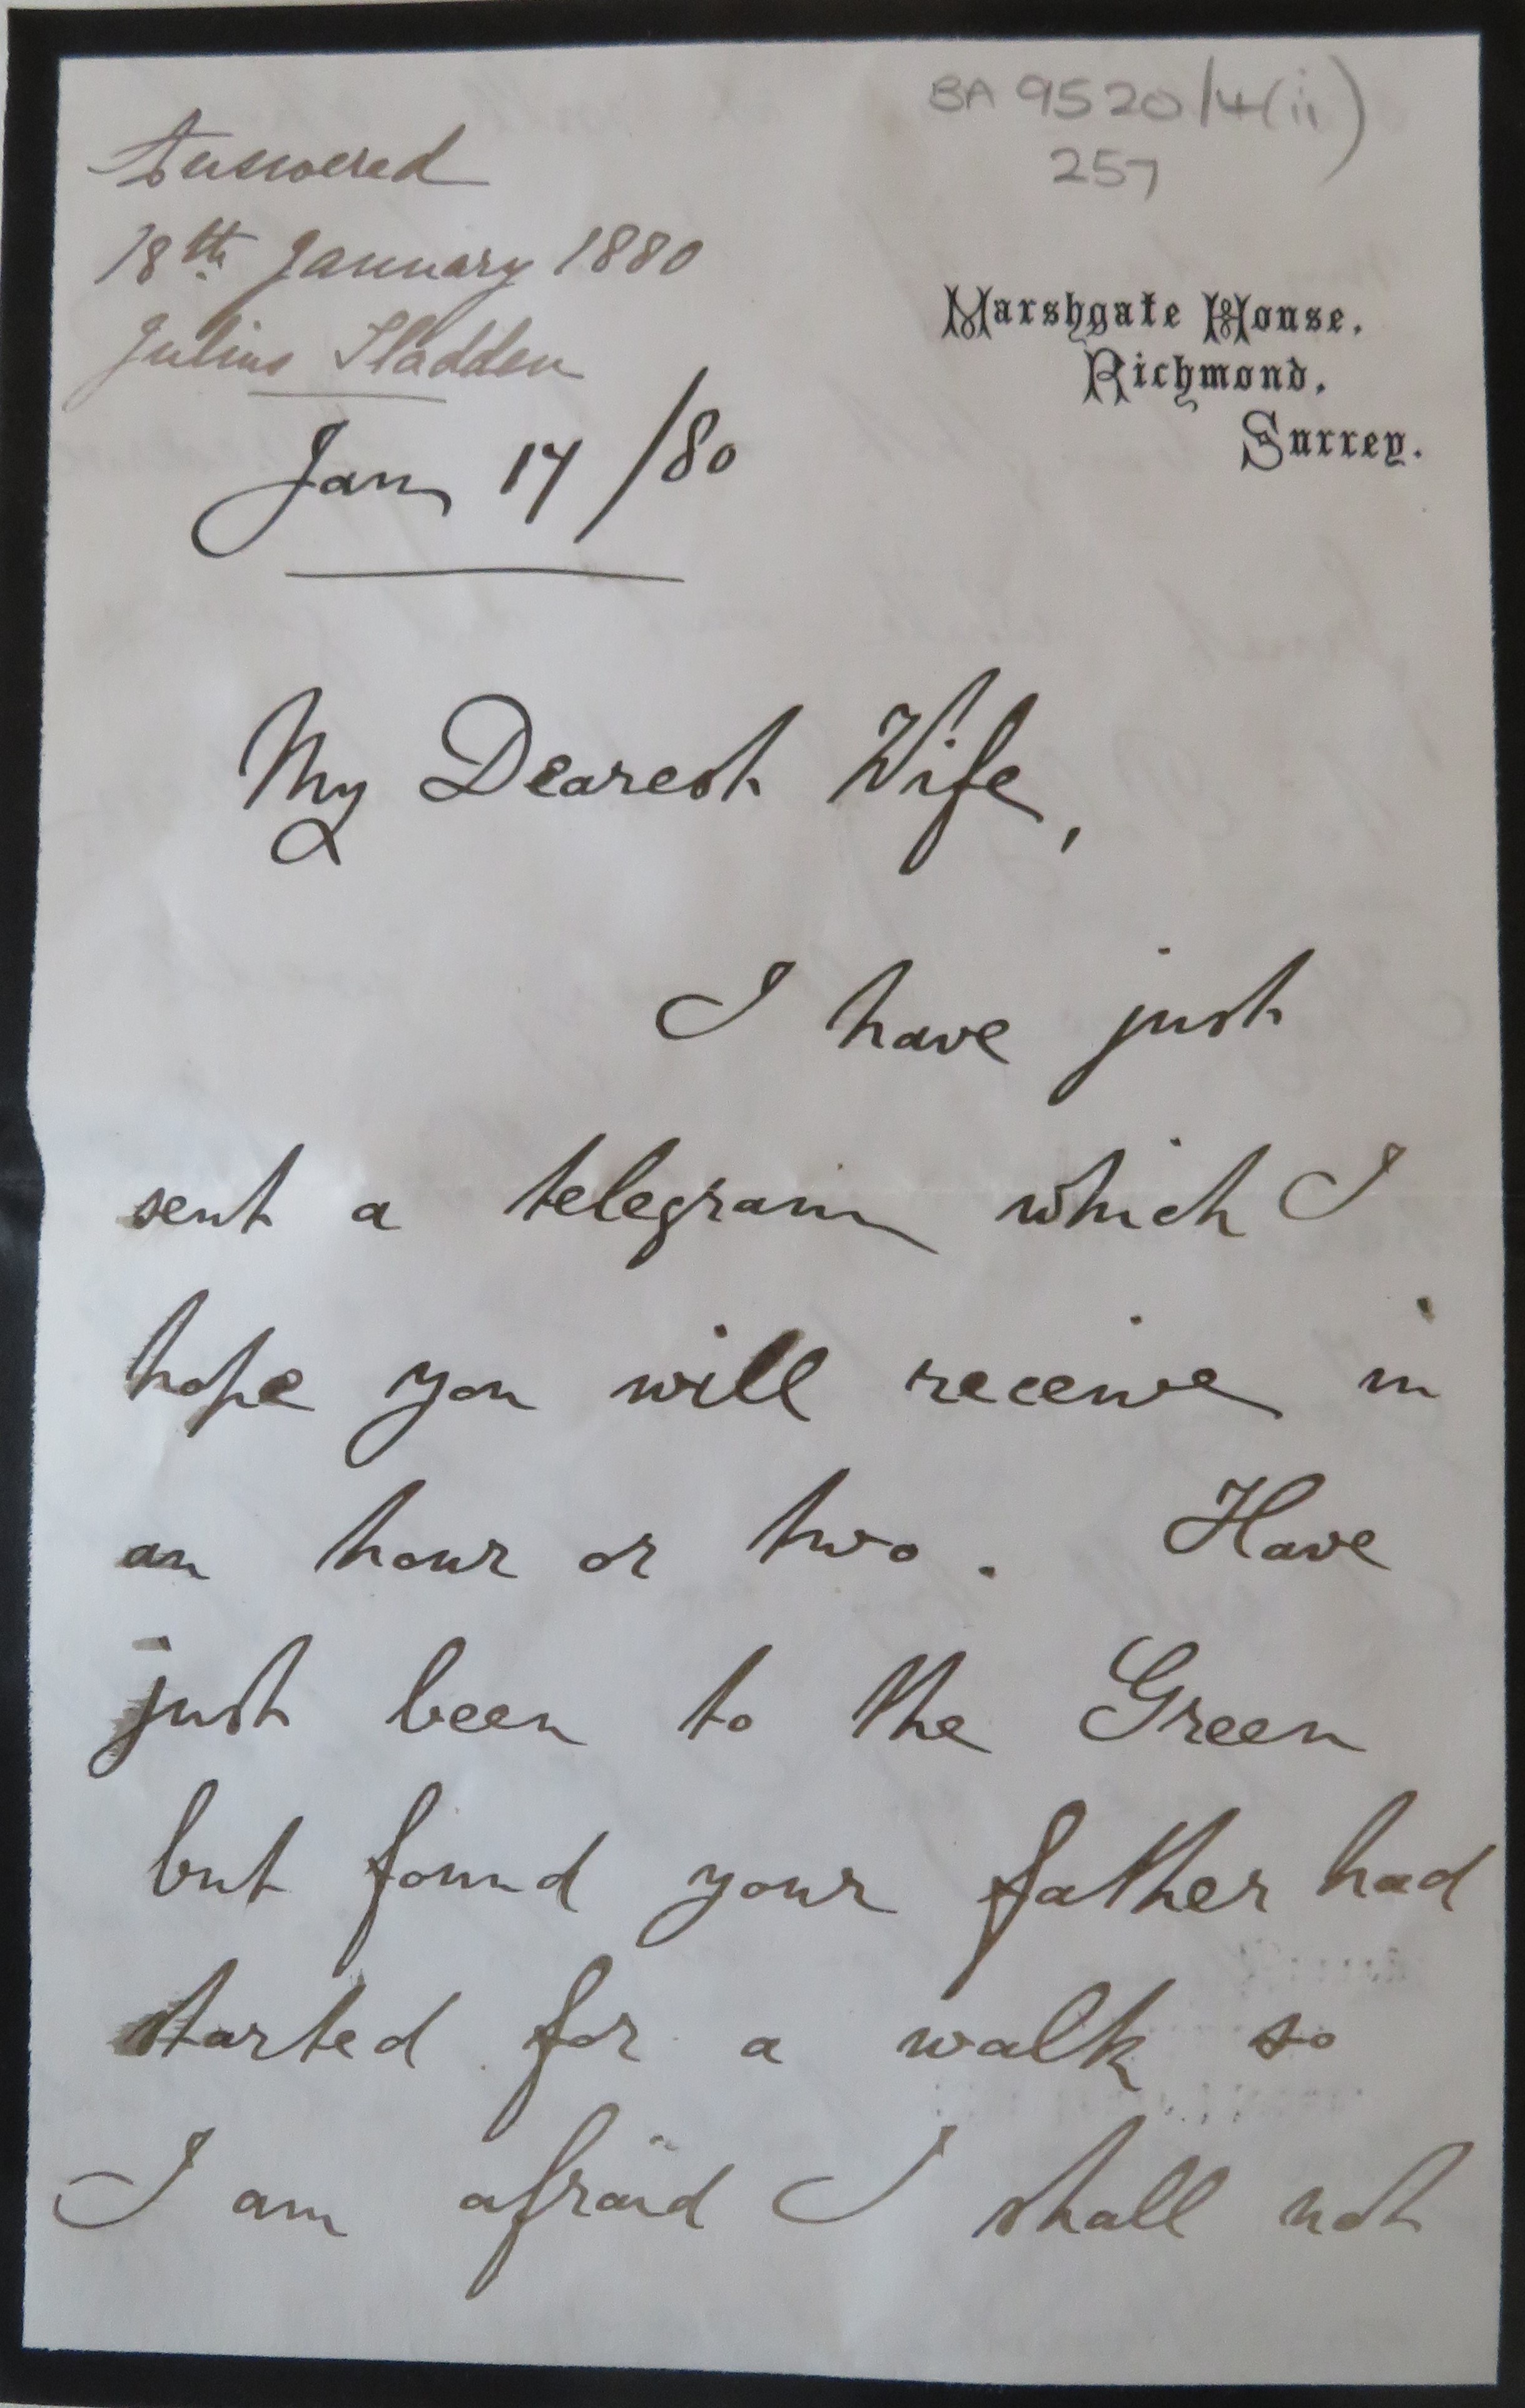 BA 9520/4(ii)
257
Answered
18th January 1880
Julius Sladden
Marshgate House,
Richmond,
Surrey.
Jan 17/80
My Dearest Wife,
I have just
sent a telegram which I
hope you will receive in
an hour or two. Have
just been to the Green
but found your father had
started for a walk so
I am afraid I shall not